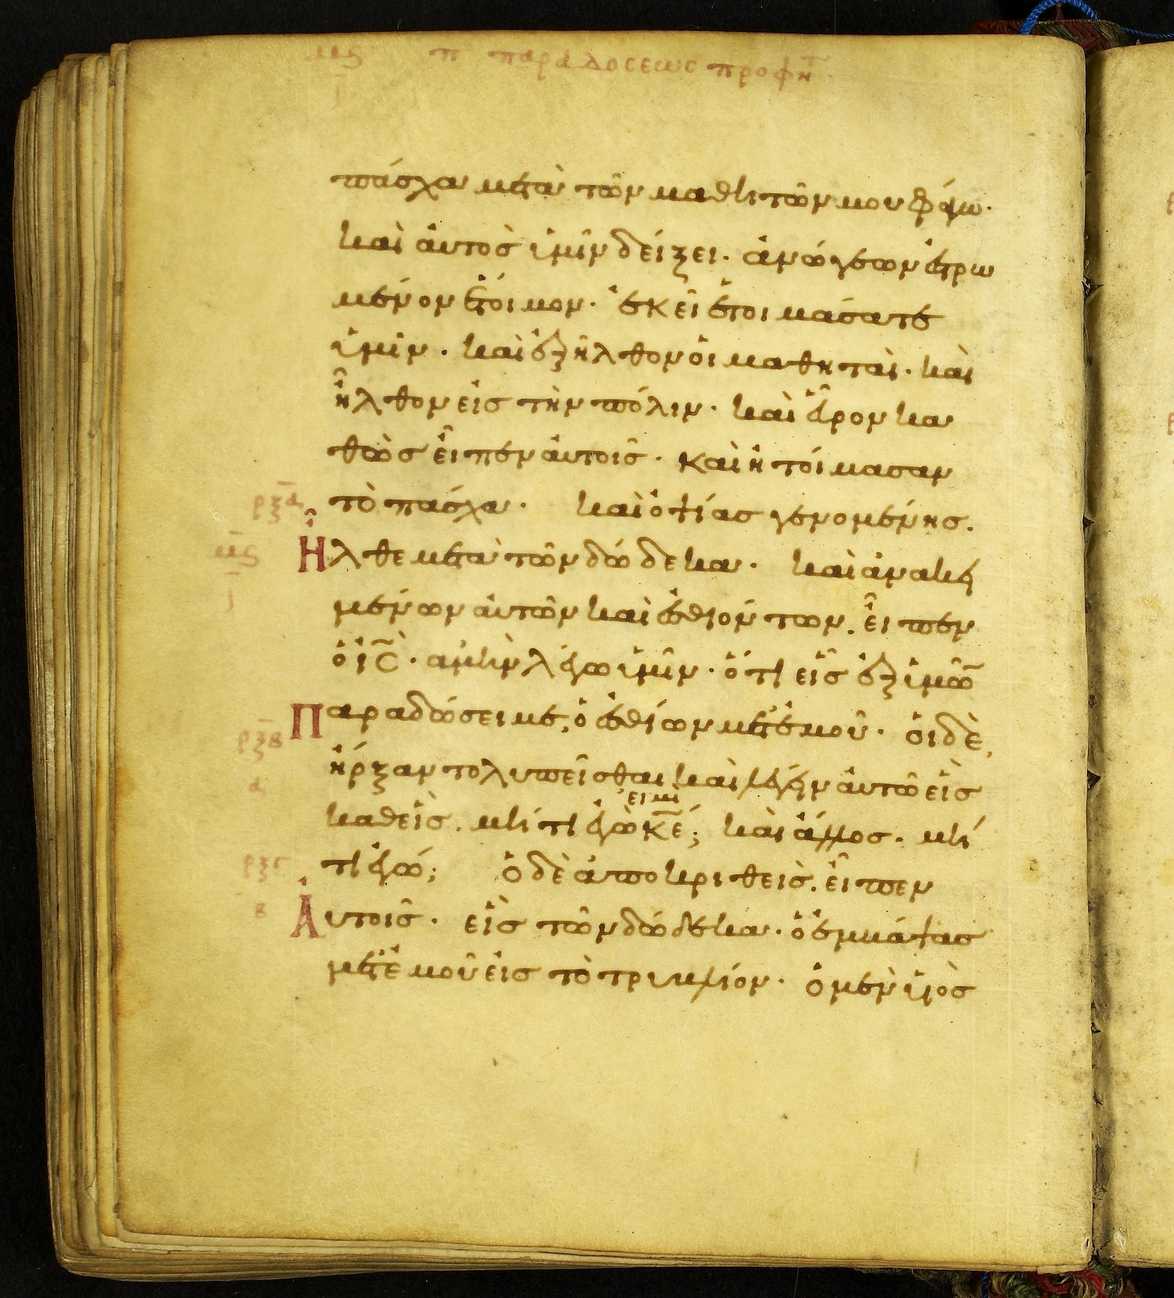 μς π παραδοσεως προφητ
πάσχα μετὰ τῶν μαθιτῶν μου φάγω·
καὶ ἀυτοσ ὑμῖν δείξει· ἀνώγεων ἐστρω
μένον ἕτοιμον· ἐκεῖ ἑτοιμάσατε
ὑμῖν· καὶ ἐξῆλθον ὁι μαθηταὶ· καὶ
ἦλθον εἰσ τὴν πόλιν· καὶ ἕυρον κα
θὼσ εἶπεν ἀυτοισ· καὶ ἡτοίμασαν
ρξα τὸ πάσχα· καὶ ὀψίασ γενομένησ.
μς Ἦλθε μετὰ τῶν δώδεκα· καὶ ἀνακει
μένων ἀυτῶν καὶ ἐσθιόντων. εἶπεν
ὁ ις· αμὶν λέγω ὑμῖν· ὅτι εἷσ ἐξ ὑμῶ
Παραδώσει με, ὁ ἐσθίων μετ ἐμοῦ· ὁι δὲ,
ρξβ ἤρξαν το λυπεῖσθαι καὶ λέγειν ἀυτῶ εἷσ
α καθεἷσ. μίτι ἐγώ ειμι κε; καὶ ἄλλοσ. μί
ρξγ τι ἐγώ; ὁ δὲ ἀποκριθεὶσ. εἶπεν
β Ἀυτοισ· εἷσ τῶν δώδεκα· ὁ ἐμβάψασ
μετ ἐμοῦ εἰσ τὸ τρυβλίον· ὁ μὲν υἱὸσ